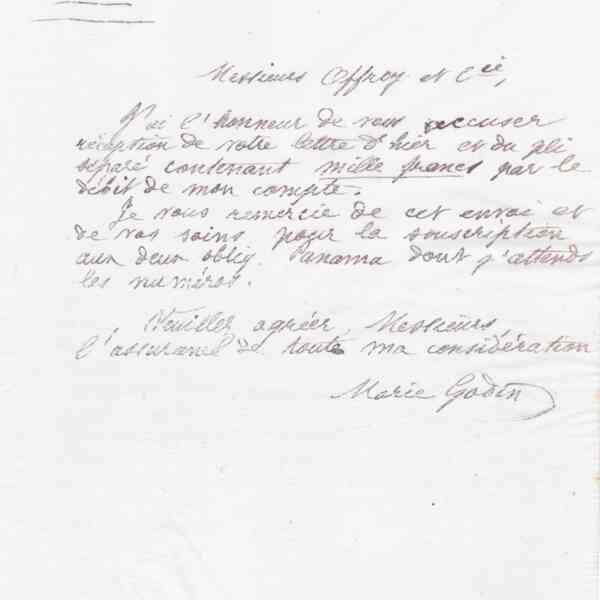 Messieurs Offroy et Cie,
J'ai l'honneur de vous accuser
réception de votre lettre d'hier et du pli
séparé contenant mille francs par le
débit de mon compte.
Je vous remercie de cet envoi et
de vos soins pour la souscription
aux deux oblig. Panama dont j'attends
les numéros.
Veuillez agréer, Messieurs,
l'assurance de toute ma considération
Marie Godin